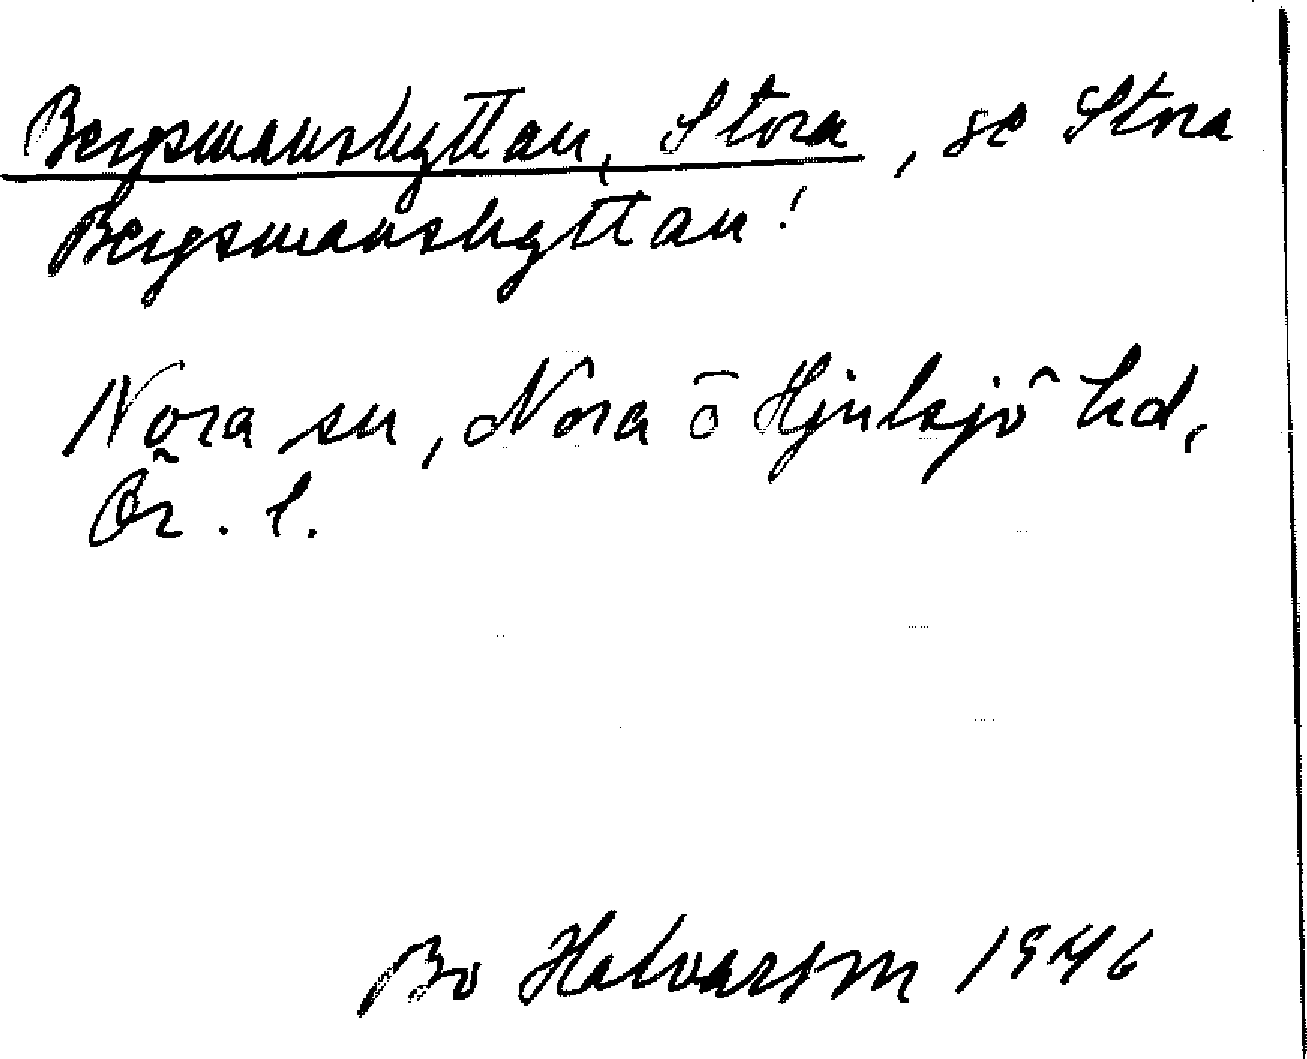 Bergsmanshyttan, Stora, se Stora
Bergsmanshyttan!
Nora sn, Nora o Hjulsjö hd,
Ör. l.
Bo Halvarson 1946